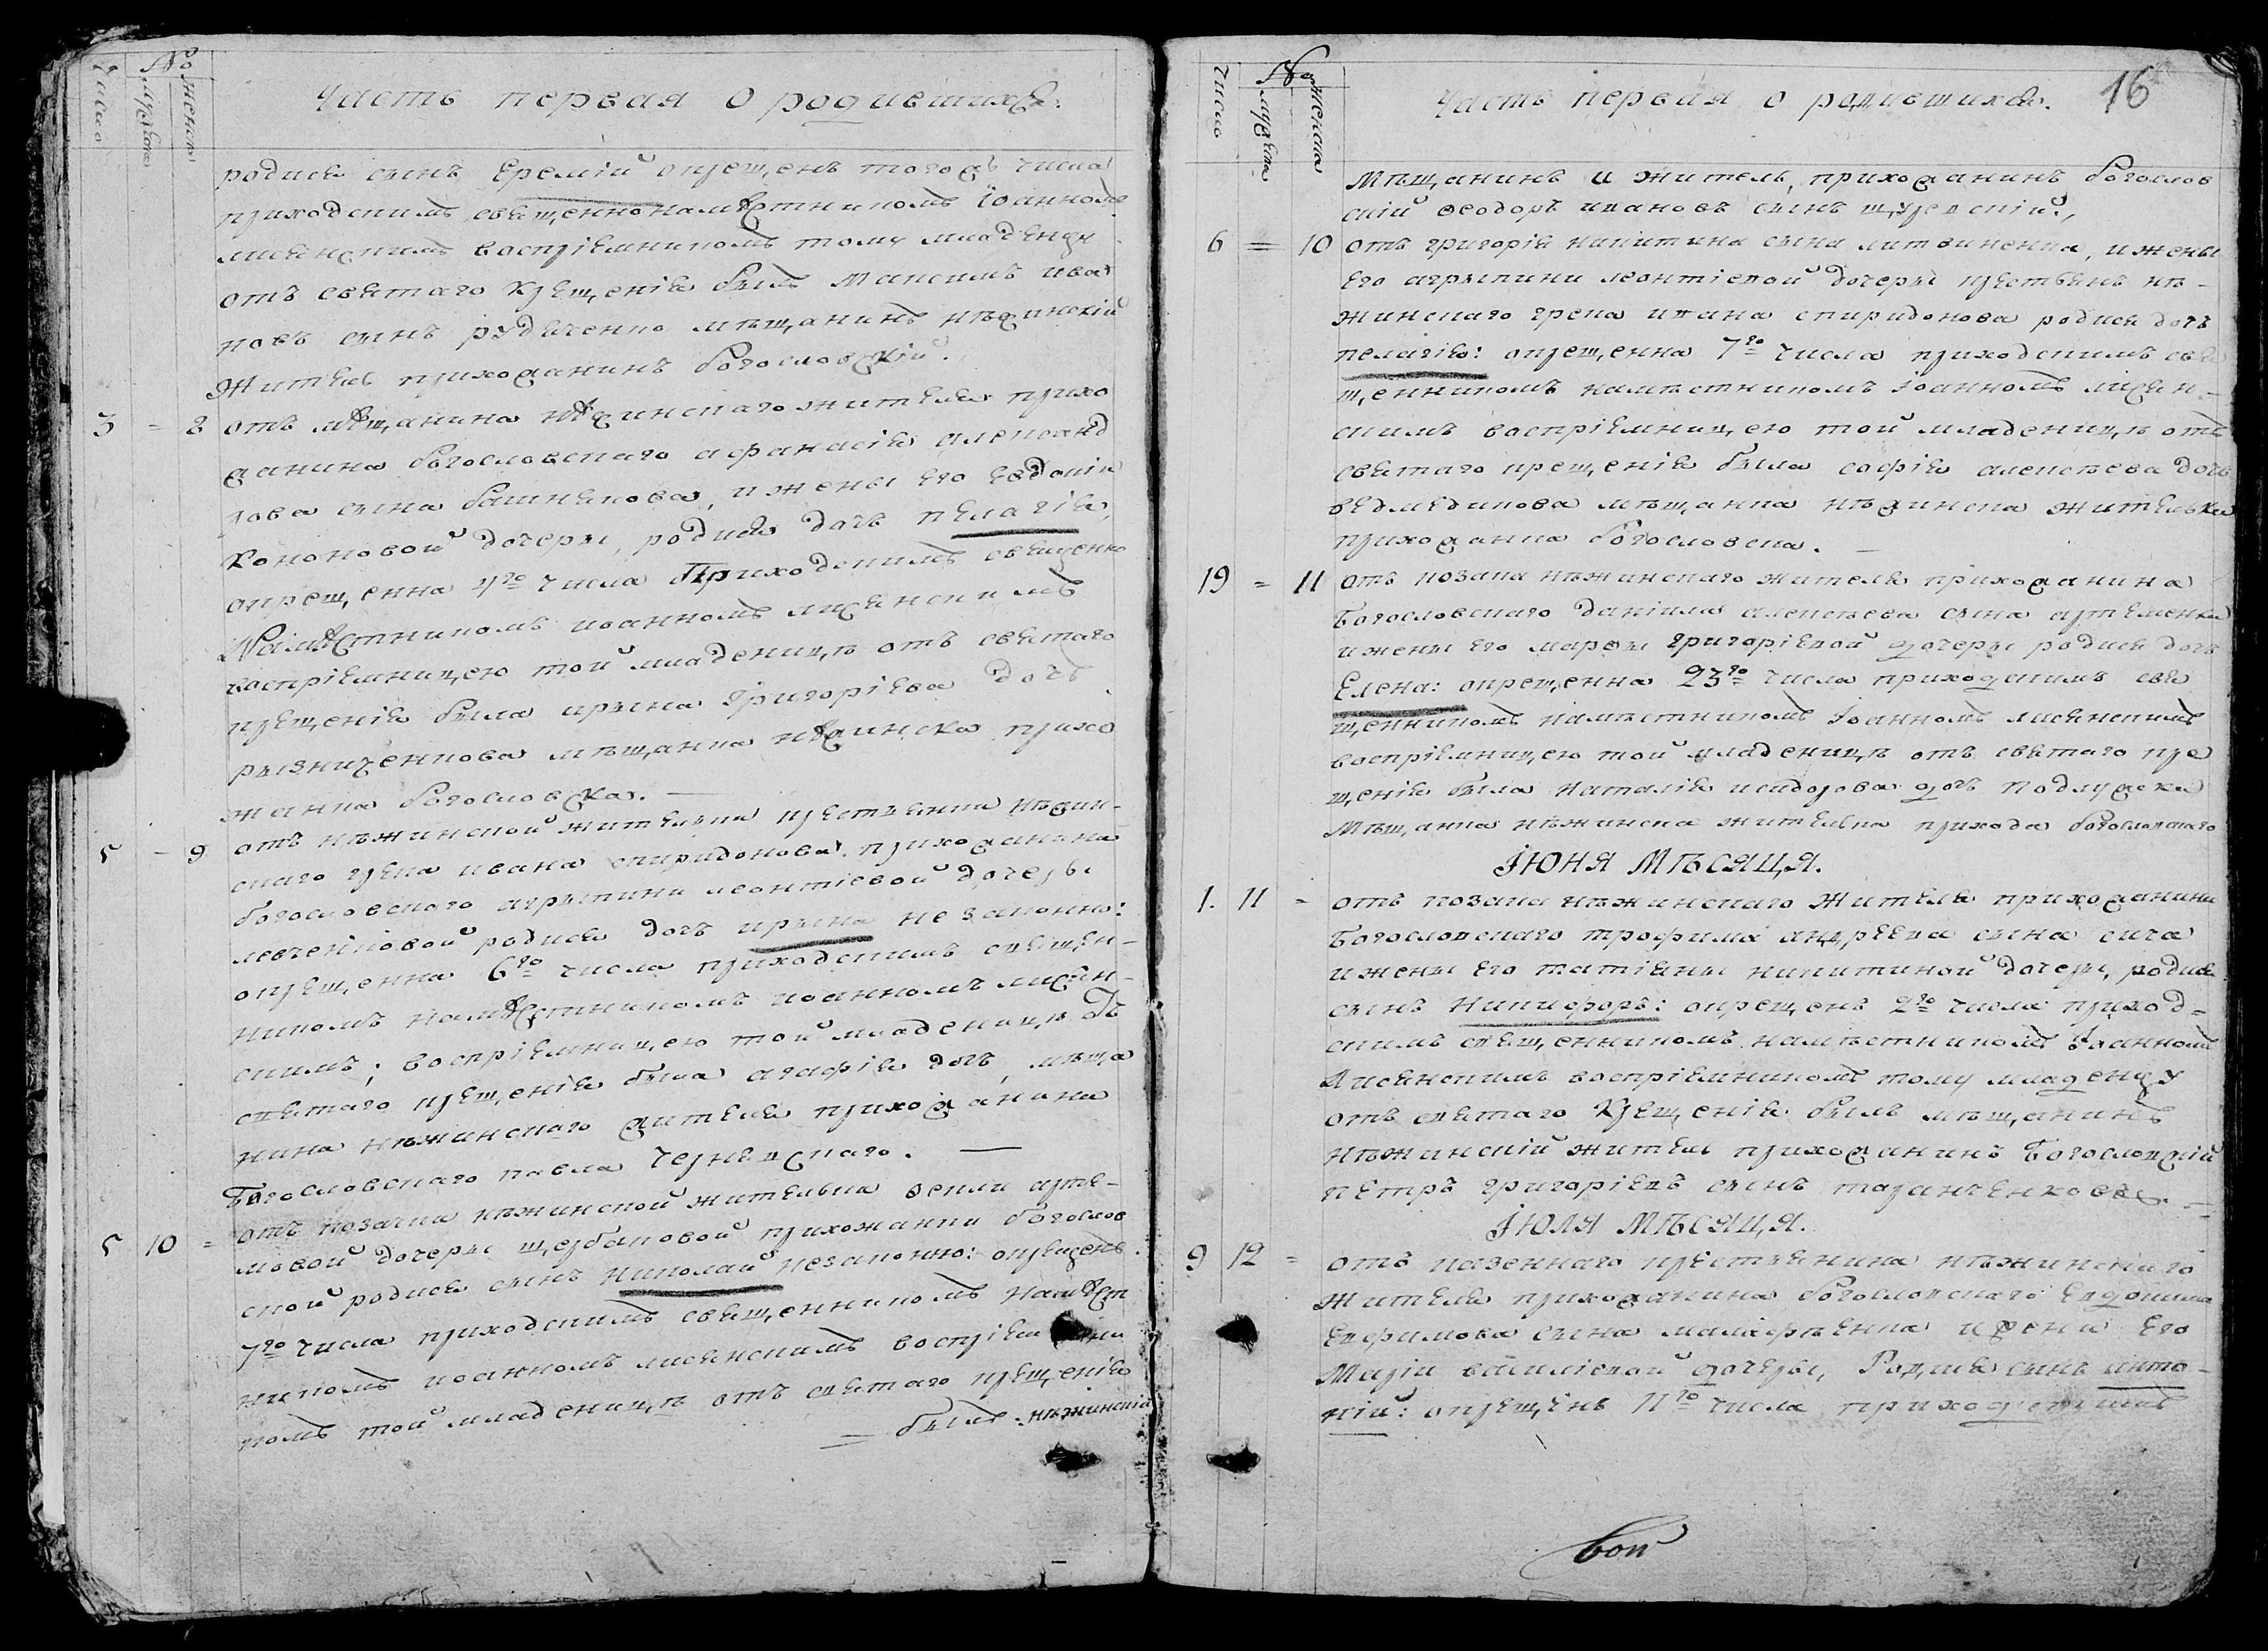 Число
№
мужеска
женска
Часть первая о родившихся.
родися сынъ Еремій окрещенъ тогожъ числа
приходскимъ священнонамѣстникомъ Іоанномъ
лисянскимъ воспріемникомъ тому младенцу
отъ святаго крещенія былъ Максимъ ива
новъ сынъ рудыченко мѣщанинъ нѣжинскій
житель прихожанинъ богословскій.
3 = 8 отъ мѣщанина нѣжинскаго жителя прихо
жанина богословскаго афанасія александ
рова сына башнякова, и жены его евдокіи
кононовой дочеры, родися дочь пелагія,
окрещенна 4го числа Приходскимъ священно
Намѣстникомъ иоанномъ лисянскимъ
воспріемницею той младеницѣ отъ святаго
крещенія была ирына григоріева дочь
рызниченкова мѣщанка нѣжинска прихо
жанка богословска.
5 - 9 отъ нѣжинской жителки крестянки нѣжин-
скаго грека ивана спиридонова прихожанина
богословскаго агрыпини леонтіевой дочеры
левченковой родися дочь ирына незаконно:
окрещенна 6го числа приходскимъ священ-
никомъ намѣстникомъ иоанномъ лисян-
скимъ; воспріемницею той младеницѣ отъ
святаго крещенія была агафія дочь мѣща
нина нѣжинскаго жителя прихожанина
Богословскаго павла Чернявскаго.
5 10 = отъ козачки нѣжинской жителвки феклы арте-
мовой дочеры щербаковой прихожанки богослов
ской родися сынъ николай незаконно: окрещенъ
7го числа приходскимъ священникомъ намѣст
никомъ иоанномъ лисянскимъ воспріемни
комъ той младеницѣ отъ святаго крещенія
= былъ нѣжинскій
16
Число
№
мужеска
женска
Часть первая о родившихся.
Мѣщанинъ и житель, прихожанинъ богослов
скій ѳеодоръ ивановъ сынъ щуревскій,
6 = 10 отъ григорія никитина сына литвиненка, и жены
его агрыпини леонтіевой дочеры крестьянъ нѣ-
жинскаго грека ивана спиридонова родися дочь
пелагія: окрещенна 7го числа приходскимъ свя
щенникомъ намѣстникомъ Іоанномъ лисян-
скимъ воспріемницею той младеницѣ отъ
святаго крещенія была софія алексѣева дочь
ведмедикова мѣщанка нѣжинска жителька
прихожанка богословска.
19 = 11 отъ козака нѣжинскаго жителя прихожанина
Богословскаго даніила алексѣева сына артеменка
и жены его марфы григоріевой дочеры родися дочь
Елена: окрещенна 23го числа приходскимъ свя
щенникомъ намѣстникомъ Іоанномъ лисянскимъ
воспріемницею той младеницѣ отъ святаго кре
щенія была Наталія исидорова дочь подлужска
Мѣщанка нѣжинска жителька прихода богословскаго
ІЮНЯ МѢСЯЦЯ.
1. 11 = отъ козака нѣжинскаго жителя прихожанина
Богословскаго трофима андреева сына сича
и жены его татіяны никитиной дочеры, родися
сынъ Никифоръ: окрещенъ 2го числа приход=
скимъ священникомъ намѣстникомъ Іоанномъ
Лисянскимъ воспріемникомъ тому младенцу
отъ святаго крещенія былъ мѣщанинъ
нѣжинскій житель прихожанинъ Богословскій
петръ григоріевъ сынъ таранченковъ.
ІЮЛЯ МѢСЯЦЯ.
9 12 = отъ казеннаго крестьянина нѣжинскаго
жителя прихожанина богословскаго Евдокима
Ефимова сына малафѣенка и жены его
Маріи василіевой дочеры, Родися сынъ анто-
ній: окрещенъ 11го числа приходскимъ